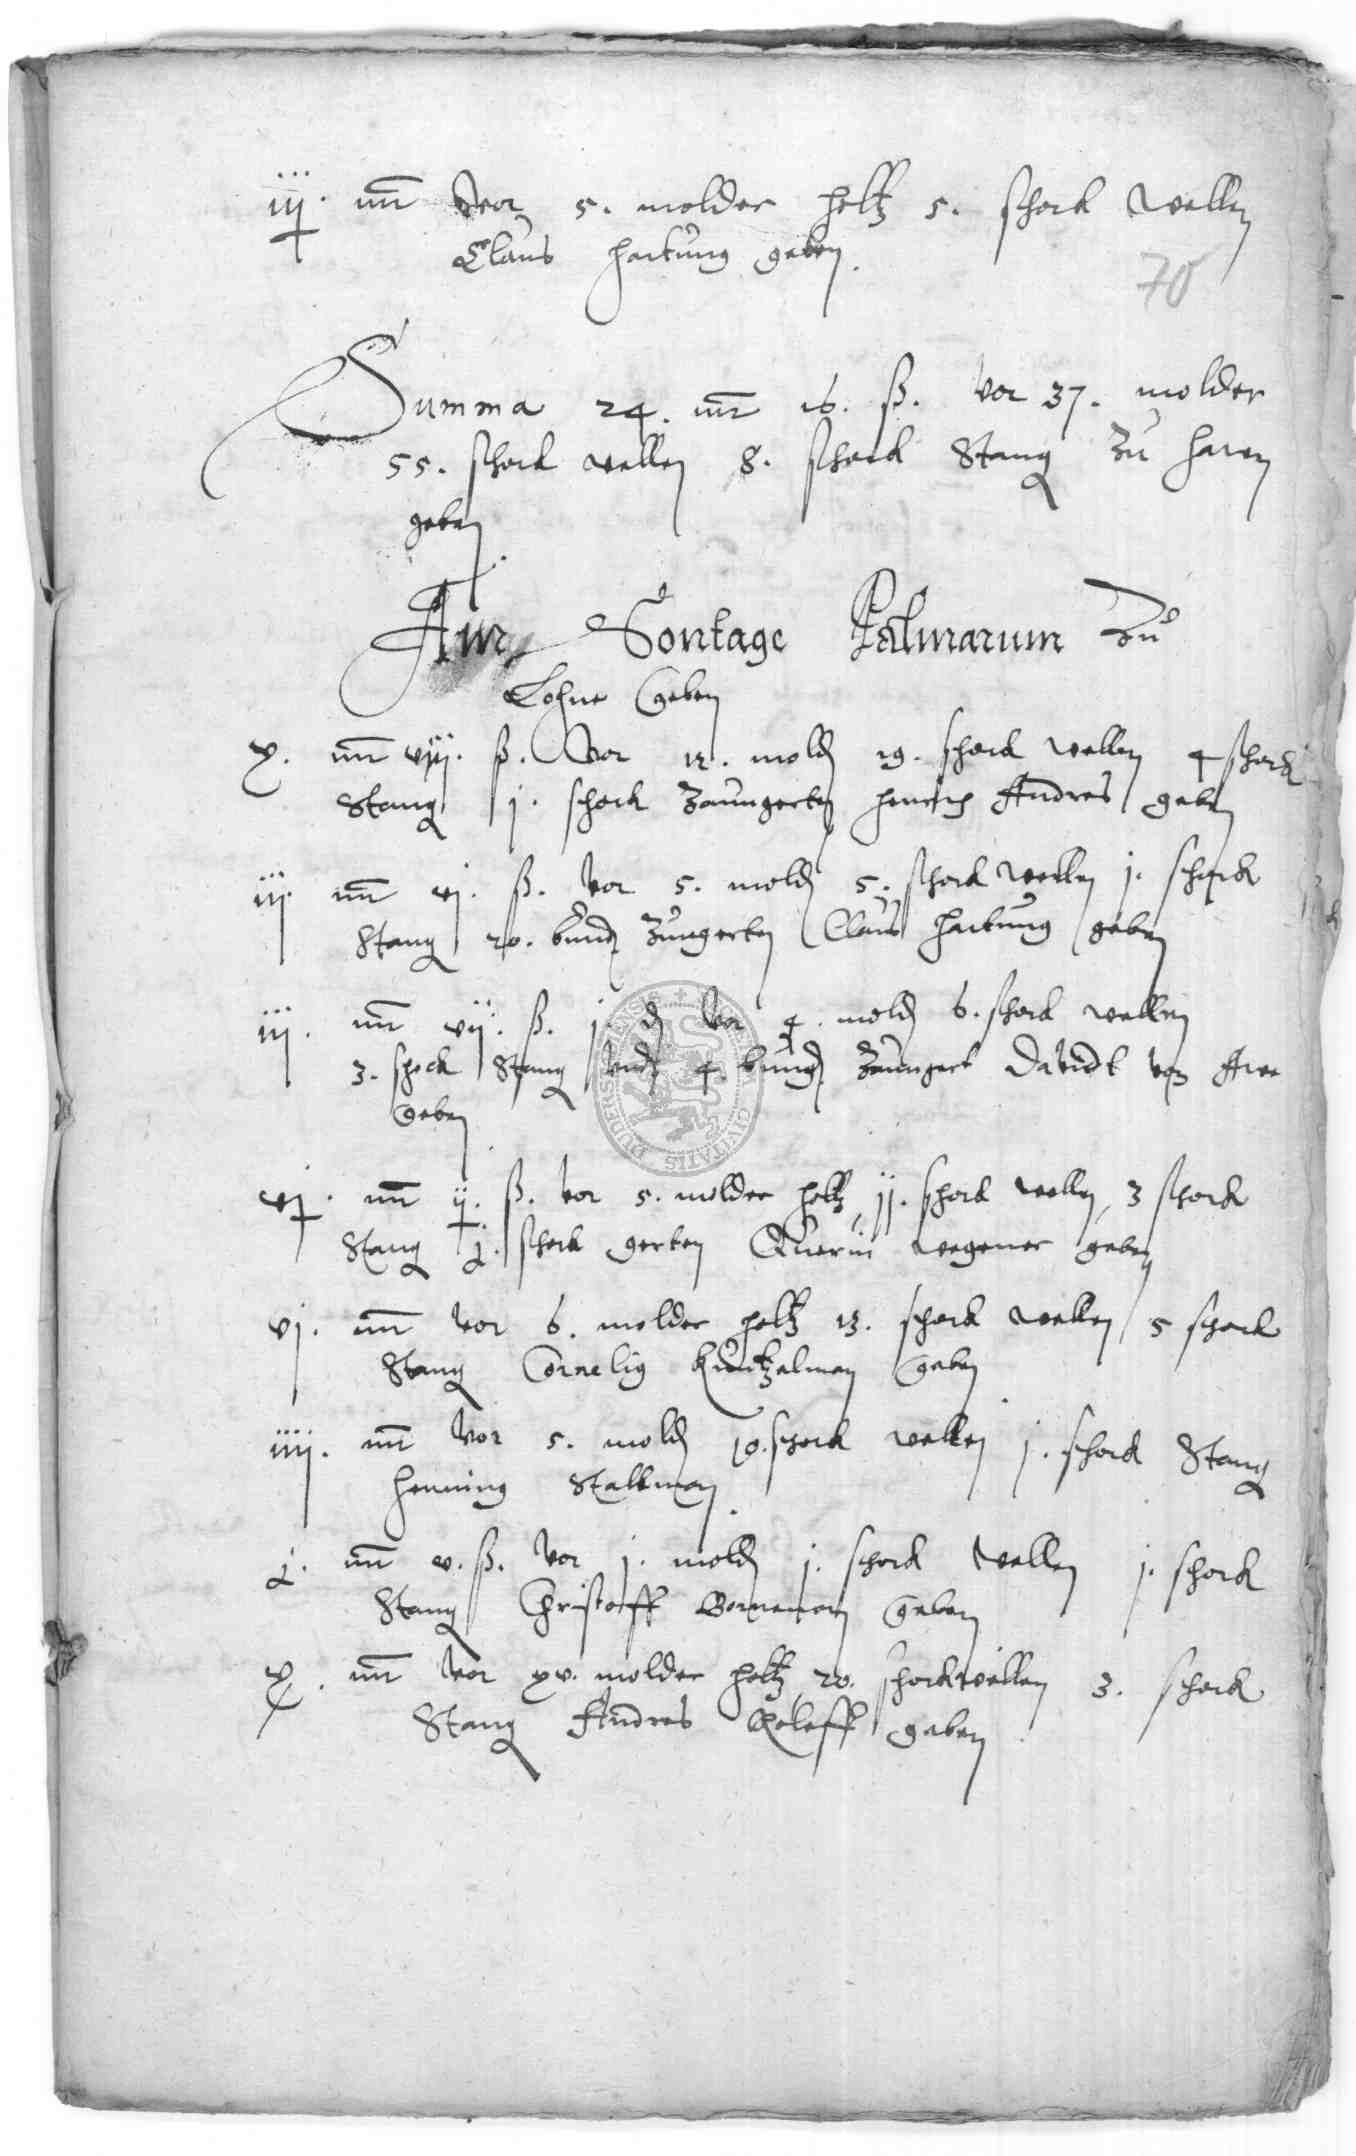 iij. mr vor 5. molder holtz 5. schock wellen
Claus Hartung geben.
70
Summa 24. mr 16. ß. vor 37. molder
55. schock wellen 8. schock Stang zu hawen
geben.
Am Sontage Palmarum zu
Lohne geben
x. mr viij. ß. vor 12. mold 19. schock wellen 4 schock
Stang j. schock Zaungerten Henrich Andres geben
iij. mr vj. ß. vor 5. mold 5. schock wellen j. schock
Stang 20. bund Zungerten Claus Hartung geben
iij. mr vij. ß. j. d vor 4. mold 6. schock wellen
3. schock Stang vnd 4. bund Zaungert Davidt von
geben
vj. mr ij. ß. vor 5. molder holtz, jj. schock wellen, 3 schock
Stang j. schock gerten Querin wegener geben
vj. mr vor 6. molder holtz 13. schock wellen 5 schock
Stang Cornelig Kuntzelman geben
iiij. mr vor 5. mold 10. schock wellen j. schock Stang
Henning Stallman.
j. mr v. ß. vor j. mold j. schock wellen j. schock
Stang Christoff Borneman geben
x. mr vor xv. molder holtz 20. schock wellen 3. schock
Stang Andres Roleff geben
CIVITATIS DUDERSTADENSIS